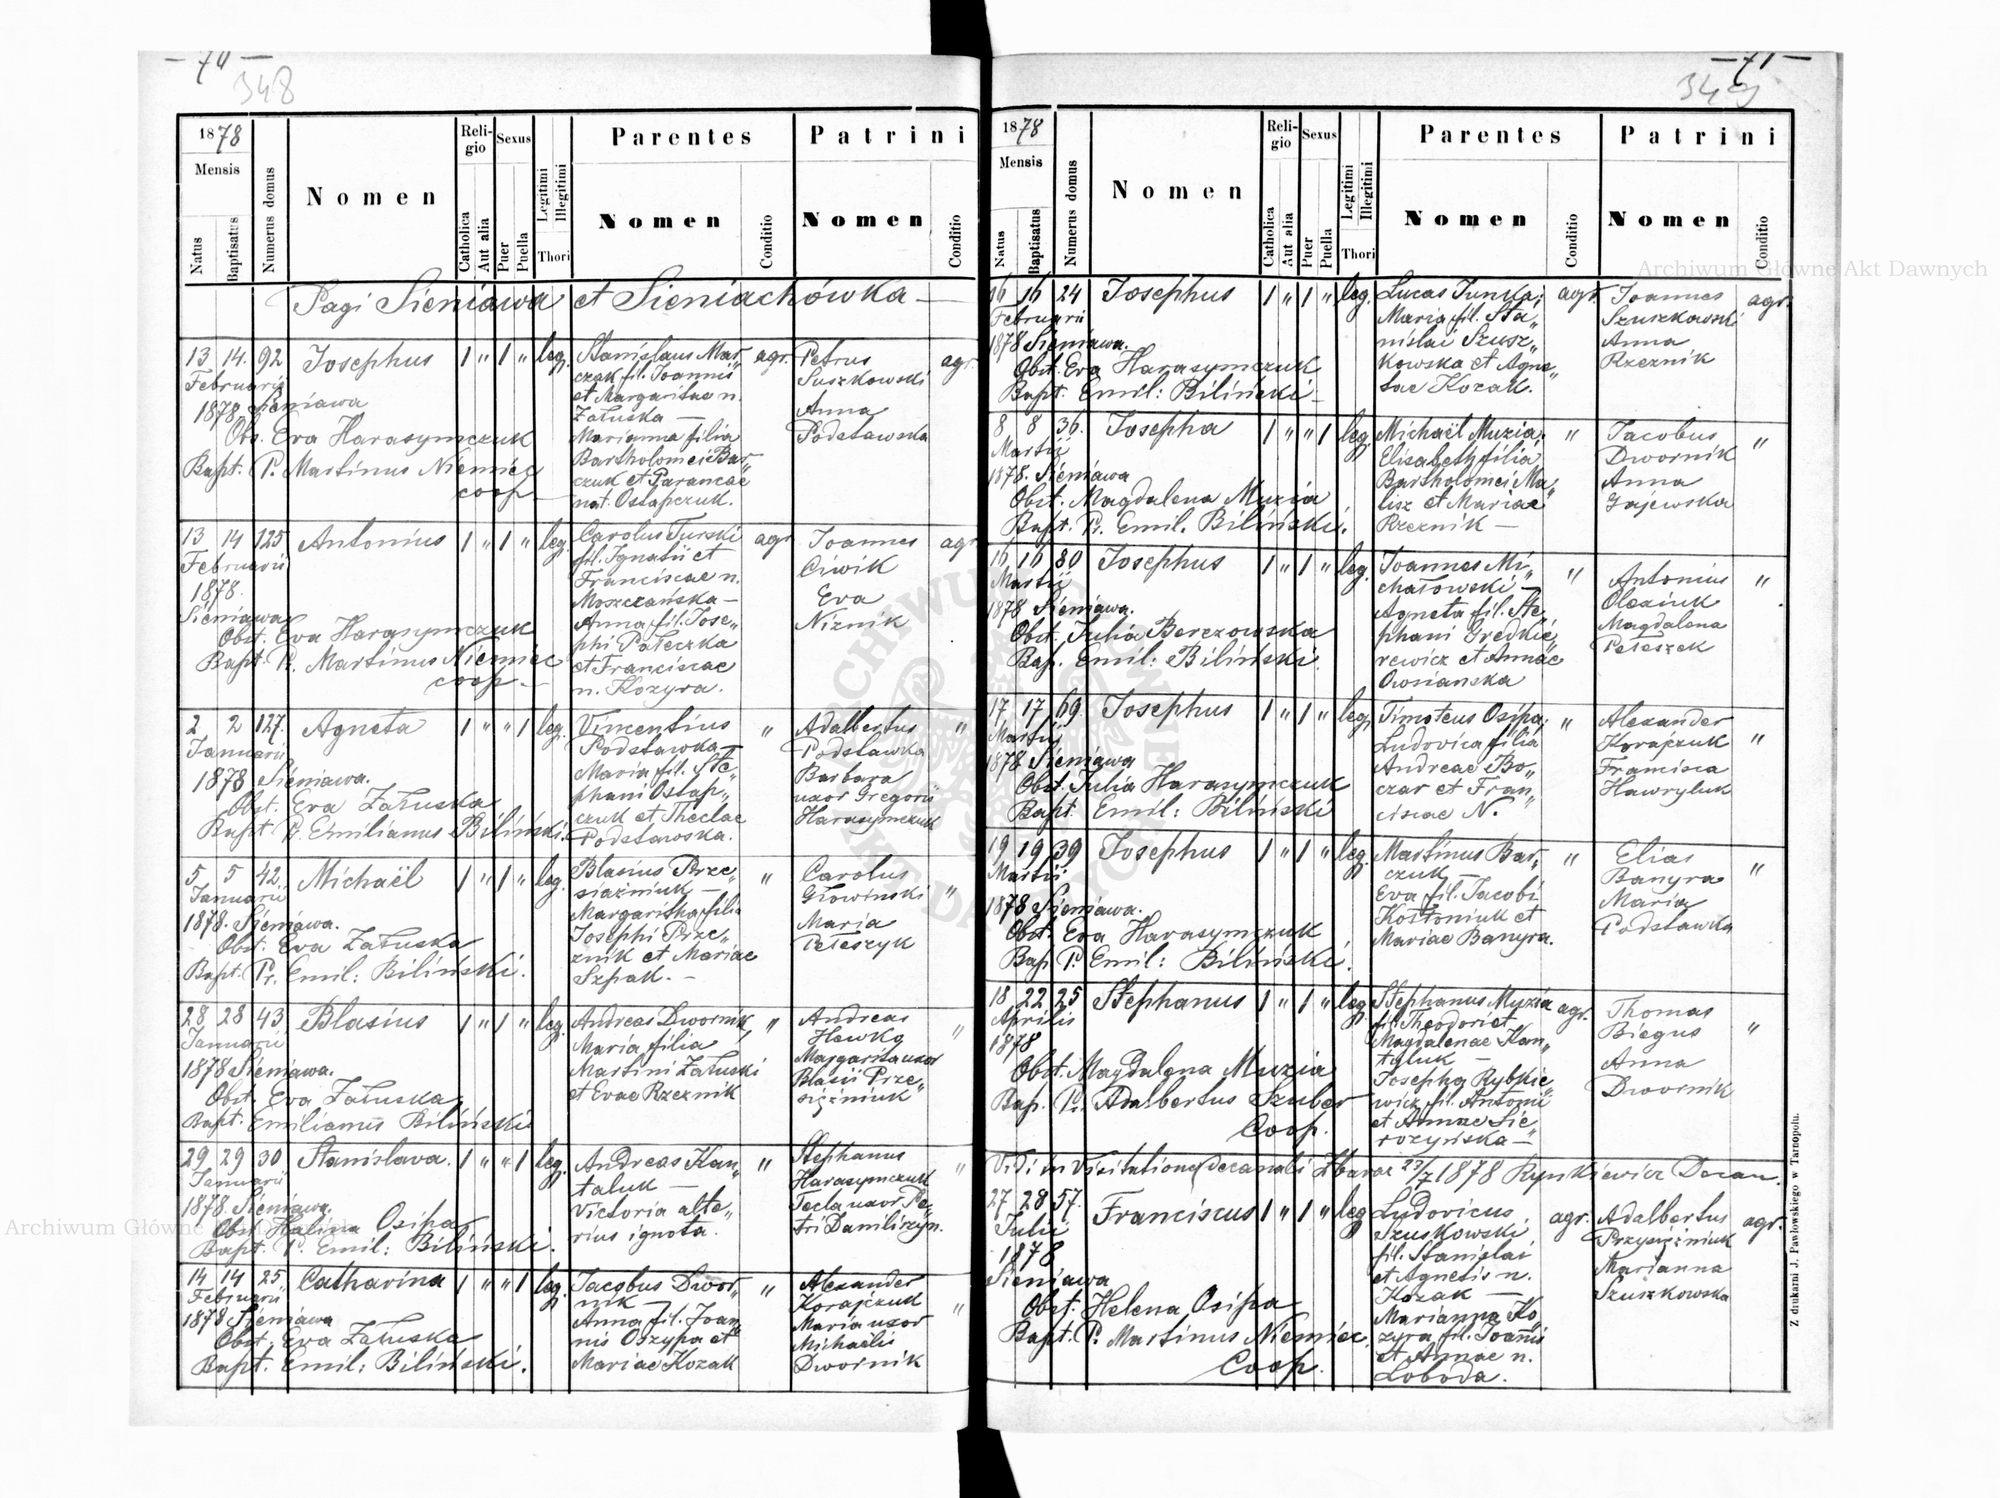 — 70 —
348
1878
Mensis
Natus
Baptisatus
Numerus domus
Nomen
Religio
Catholica
Aut alia
Sexus
Puer
Puella
Legitimi
Illegitimi
Thori
Parentes
Nomen
Conditio
Patrini
Nomen
Conditio
Pagi Sieniawa et Sieniachówka —
13 14. 92 Josephus 1 " 1 " leg.
Februarii
1878 Sieniawa
Obs. Eva Harasymczuk
Bapt. P. Martinus Niemiec
coop —
Stanislaus Mar„
czak fil. Joannis
et Margaritae n.
Załuska —
Marianna filia
Bartholomei Bar„
czuk et Parancae
nat. Ostapczuk.
agr.
Petrus
Suszkowski
Anna
Podstawska
agr.
13 14 125 Antonius 1 " 1 " leg.
Februarii
1878.
Sieniawa
Obst. Eva Harasymczuk
Bapt. P. Martinus Niemiec
coop —
Carolus Turski
fil. Ignatii et
Franciscae n.
Moszczańska —
Anna fil. Jose„
phi Pałeczka
et Franciscae
n. Kozyra.
agr.
Joannes
Ćwik
Eva
Niznik
agr.
2 2 127. Agneta 1 " " 1 leg.
Januarii
1878 Sieniawa.
Obst. Eva Załuska
Bapt. P. Emilianus Biliński.
Vincentius
Podstawka —
Maria fil. Ste„
phani Ostap„
czuk et Theclae
Podstawska.
"
Adalbertus
Podstawka
Barbara
uxor Gregorii
Harasymczuk
"
5 5 42. Michaël 1 " 1 " leg.
Januarii
1878. Sieniawa.
Obst. Eva Załuska
Bapt. Pr. Emil: Biliński.
Blasius Prze„
siażniuk —
Margaritha filia
Josephi Prze„
znik et Mariae
Szpak. —
"
Carolus
Głowiński
Maria
Pełeszyk
"
28 28 43 Blasius 1 " 1 " leg.
Januarii
1878 Sieniawa.
Obst. Eva Załuska
Bapt. Emilianus Biliński
Andreas Dwornik,
Maria filia
Martini Załuski
et Evae Rzeznik
"
Andreas
Hewko
Margarita uxor
Blasii Prze„
siężniuk
"
29 29 30 Stanislava. 1 " " 1 leg.
Januarii
1878. Sieniawa.
Obst. Halina Osipa
Bapt. P. Emil: Biliński.
Andreas Kan„
taluk —
Victoria alte„
rius ignota.
"
Stephanus
Harasymczuk
Tecla uxor Pe„
tri Daniliszyn.
"
14 14 25. Catharina 1 " " 1 leg.
Februarii
1878 Sieniawa
Obst. Eva Załuska
Bapt. Emil: Biliński.
Jacobus Dwor„
nik —
Anna fil. Joan„
nis Oszypa et
Mariae Kozak
"
Alexander
Korajczuk
Maria uxor
Michaëlis
Dwornik
"
— 71 —
349
1878
Mensis
Natus
Baptisatus
Numerus domus
Nomen
Religio
Catholica
Aut alia
Sexus
Puer
Puella
Legitimi
Illegitimi
Thori
Parentes
Nomen
Conditio
Patrini
Nomen
Conditio
16 16 24 Josephus 1 " 1 " leg.
Februarii
1878 Sieniawa.
Obst. Eva Harasymczuk
Bapt. Emil: Biliński —
Maria fil. Sta„
nislai Szusz„
kowska et Agne„
tae Kozak.
agr.
Joannes
Szuszkowski
Anna
Rzeznik
agr.
8 8 36. Josepha 1 " " 1 leg.
Martii
1878. Sieniawa
Obst. Magdalena Muzia
Bapt. P. Emil. Biliński.
Michaël Muzia.
Elisabeth filia
Bartholomei Ma„
lisz et Mariae
Rzeznik —
"
Jacobus
Dwornik
Anna
Gajewska
"
16 16 80 Josephus 1 " 1 " leg.
Martii
1878 Sieniawa.
Obst. Julia Berezowska
Bap. Emil: Biliński.
Joannes Mi„
chałowski —
Agneta fil. Ste„
phani Gredkie„
rewicz et Annae
Owsianska
"
Antonius
Olexiuk
Magdalena
Pełeszek
"
17 17 69. Josephus 1 " 1 " leg.
Martii
1878 Sieniawa
Obst. Julia Harasymczuk
Bapt. Emil: Biliński
Timoteus Osipa,
Ludovica filia
Andreae Bo„
czar et Fran„
ciscae N.
"
Alexander
Korajczuk
Francisca
Hawryluk
"
19 19 39 Josephus 1 " 1 " leg.
Martii
1878 Sieniawa.
Obst. Eva Harasymczuk
Bap. P. Emil: Biliński.
Martinus Bar„
czuk —
Eva fil. Jacobi
Kołtoniuk et
Mariae Banyra.
"
Elias
Banyra
Maria
Podstawka
"
18 22 25 Stephanus 1 " 1 " leg.
Aprilis
1878
Obst. Magdalena Muzia
Bap. P. Adalbertus Szuber
Coop.
Stephanus Muzia
fil. Theodori et
Magdalenae Kan„
tyluk —
Josepha Rybkie„
wicz fil. Antonii
et Annae Sie„
rozyńska —
agr.
Thomas
Biegus
Anna
Dwornik
"
Vidi in Visitatione decanali Zbaraż 23/7 1878 Rynkiewicz Decan.
27 28 57. Franciscus 1 " 1 " leg.
Julii
1878
Sieniawa
Obst. Helena Osipa
Bapt. P. Martinus Niemiec
Coop.
Ludovicus
Szuszkowski
fil. Stanislai
et Agnetis n.
Kozak —
Marianna Ko„
zyra fil. Joannis
et Annae n.
Łoboda.
agr.
Adalbertus
Przysiężniuk
Marianna
Szuszkowska
agr.
Z drukarni J. Pawłowskiego w Tarnopolu.
Archiwum Główne Akt Dawnych
Archiwum Główne Akt Dawnych
ARCHIWUM GŁÓWNE AKT DAWNYCH